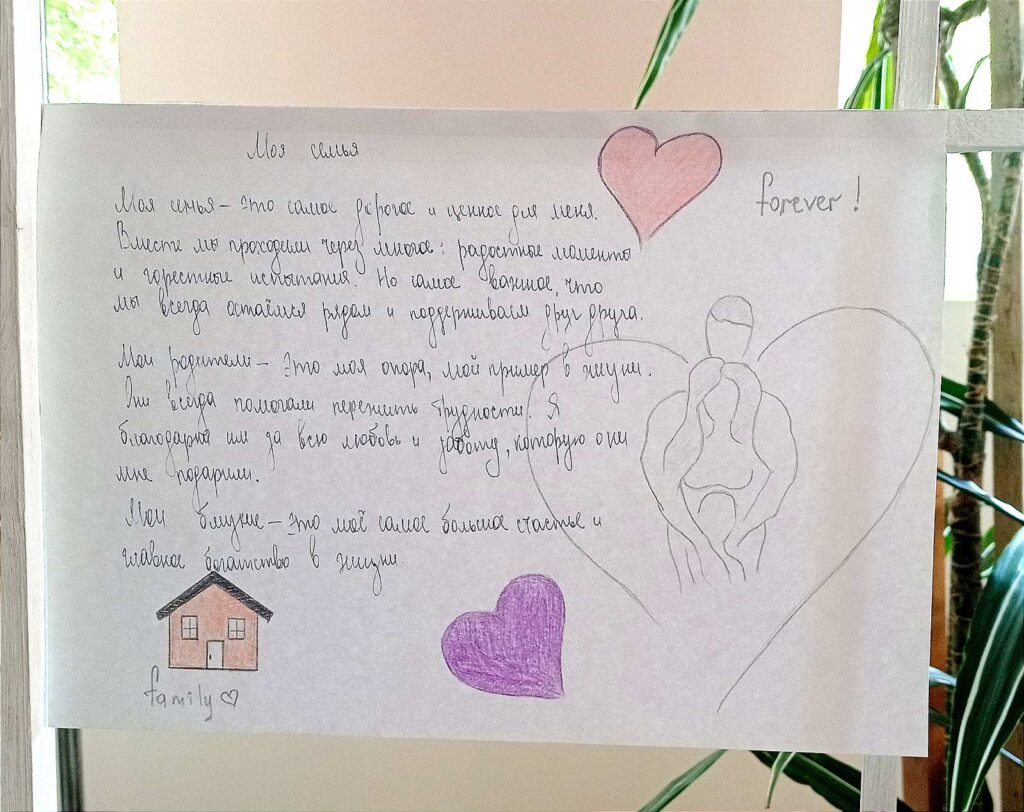 Моя семья
forever!
Моя семья – это самое дорогое и ценное для меня.
Вместе мы проходим через многое: радостные моменты
и горестные испытания. Но самое важное, что
мы всегда остаёмся рядом и поддерживаем друг друга.
Мои родители – это моя опора, мой пример в жизни.
Они всегда помогали пережить трудности. Я
благодарна им за всю любовь и заботу, которую они
мне подарили.
Мои близкие – это моё самое большое счастье и
главное богатство в жизни.
family